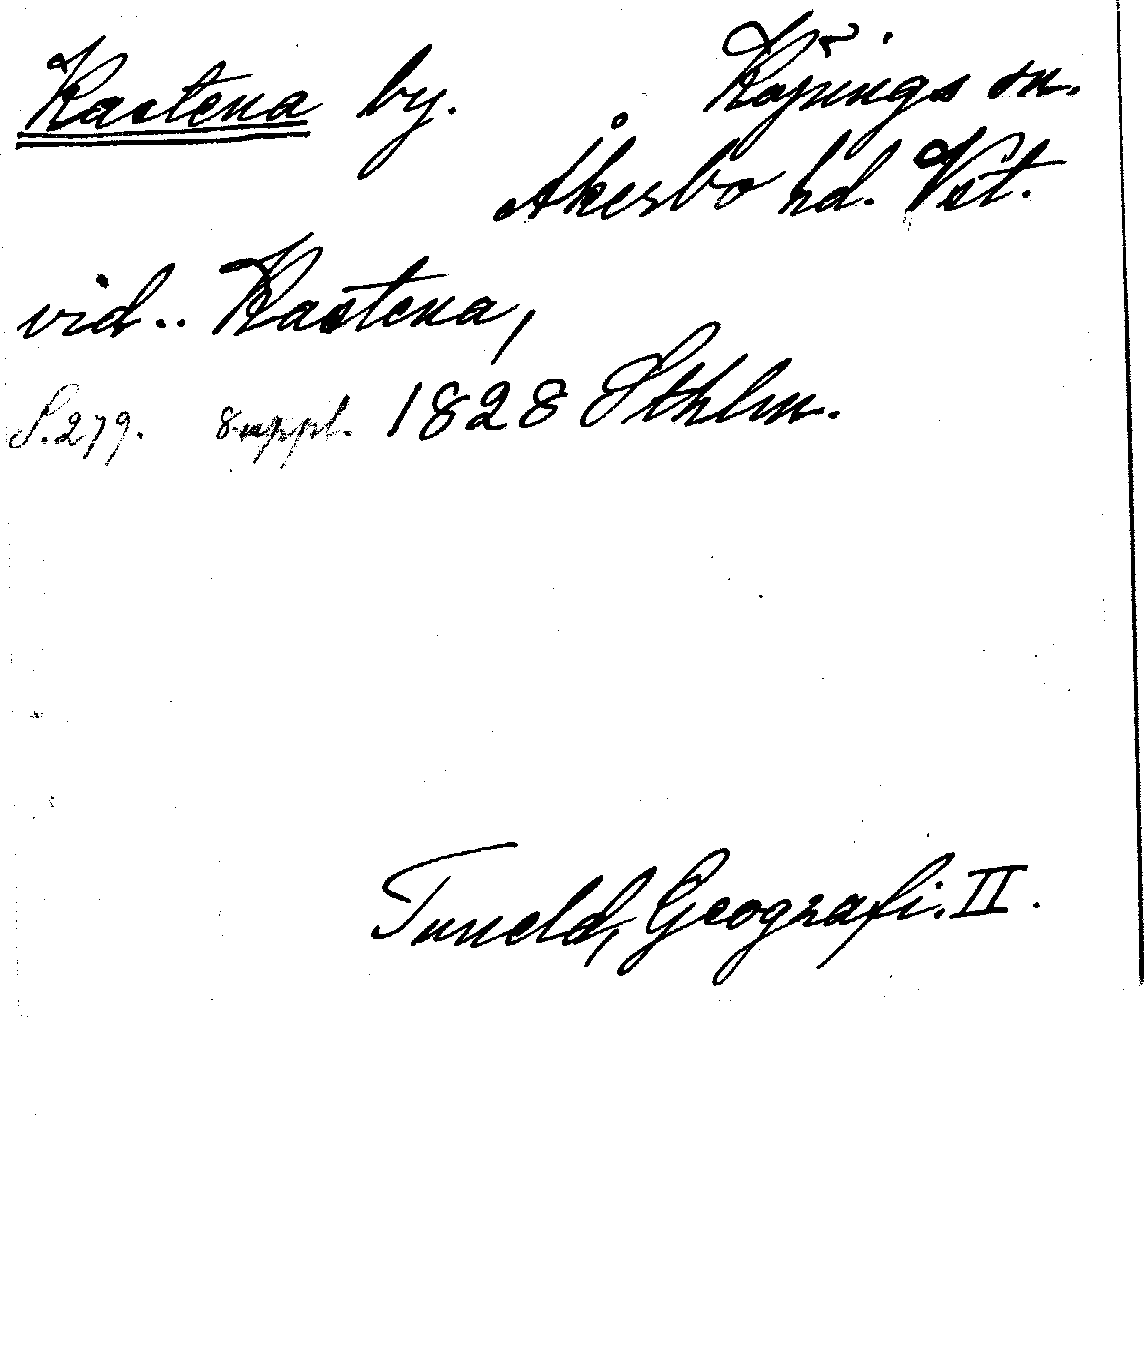 Kastena by. Köpings sn.
Åkerbo hd. Vst.
vid.. Kastena,
S. 279. 8 uppl. 1828 Sthlm.
Tuneld, Geografi. II.